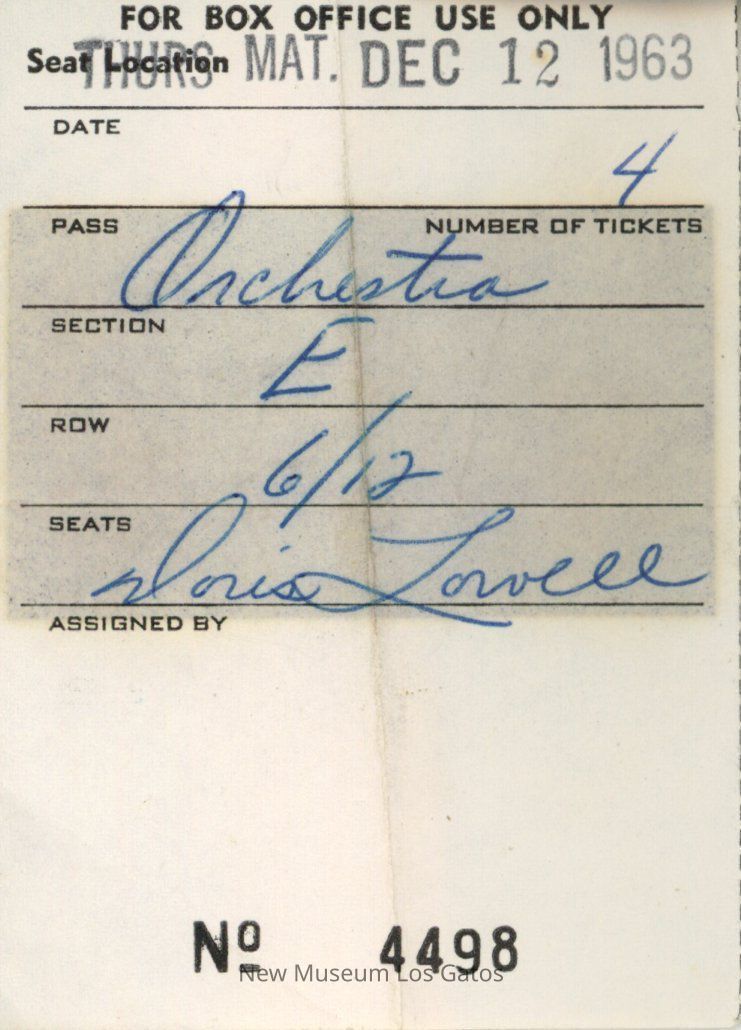 FOR BOX OFFICE USE ONLY
Seat Location THURS MAT. DEC 12 1963
DATE
4
PASS NUMBER OF TICKETS
Orchestra
SECTION
E
ROW
6/12
SEATS
Doris Lowell
ASSIGNED BY
Nº 4498
New Museum Los Gatos